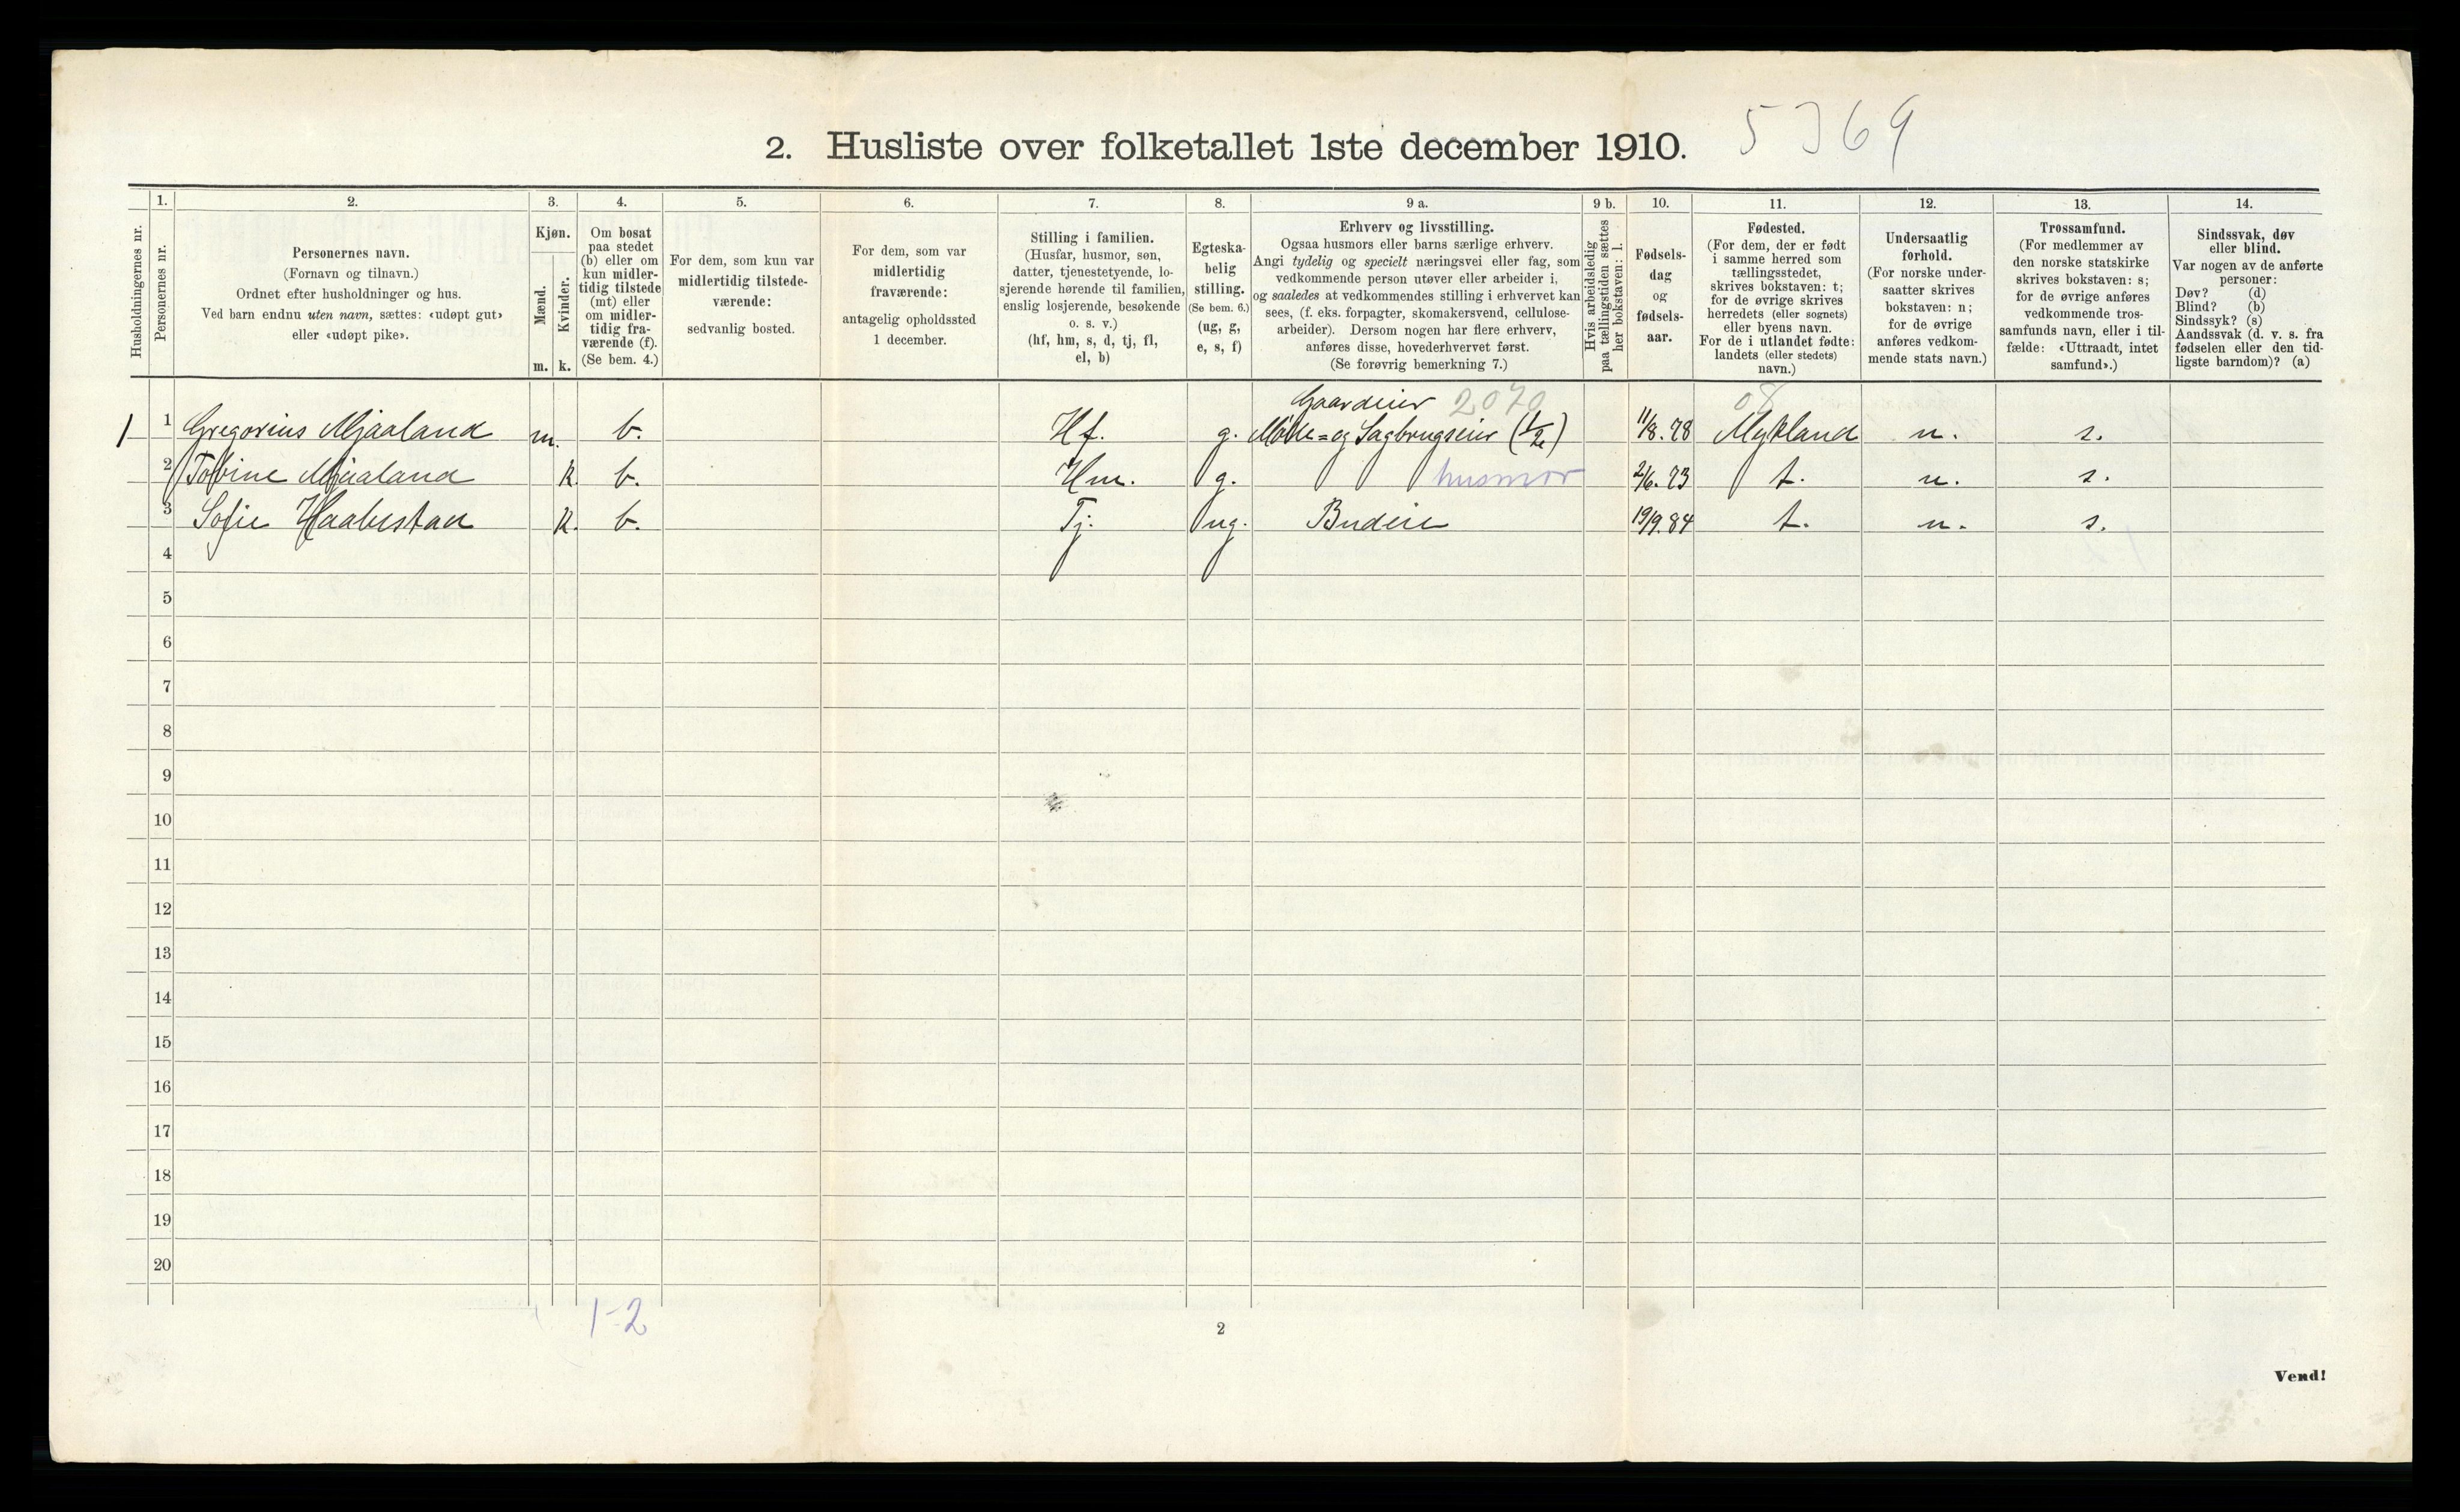 2. Husliste over folketallet 1ste december 1910. 5369
Husholdningernes nr.
1.
Personernes nr.
2.
Personernes navn.
(Fornavn og tilnavn.)
Ordnet efter husholdninger og hus.
Ved barn endnu uten navn, sættes: «udøpt gut»
eller «udøpt pike».
3.
Kjøn.
Mænd.
Kvinder.
m. k.
4.
Om bosat
paa stedet
(b) eller om
kun midler-
tidig tilstede
(mt) eller
om midler-
tidig fra-
værende (f).
(Se bem. 4.)
5.
For dem, som kun var
midlertidig tilstede-
værende:
sedvanlig bosted.
6.
For dem, som var
midlertidig
fraværende:
antagelig opholdssted
1 december.
7.
Stilling i familien.
(Husfar, husmor, søn,
datter, tjenestetyende, lo-
sjerende hørende til familien,
enslig losjerende, besøkende
o. s. v.)
(hf, hm, s, d, tj, fl,
el, b)
8.
Egteska-
belig
stilling.
(Se bem. 6.)
(ug, g,
e, s, f)
9 a.
Erhverv og livsstilling.
Ogsaa husmors eller barns særlige erhverv.
Angi tydelig og specielt næringsvei eller fag, som
vedkommende person utøver eller arbeider i,
og saaledes at vedkommendes stilling i erhvervet kan
sees, (f. eks. forpagter, skomakersvend, cellulose-
arbeider). Dersom nogen har flere erhverv,
anføres disse, hovederhvervet først.
(Se forøvrig bemerkning 7.)
9 b.
Hvis arbeidsledig
paa tællingstiden sættes
her bokstaven: l.
10.
Fødsels-
dag
og
fødsels-
aar.
11.
Fødested.
(For dem, der er født
i samme herred som
tællingsstedet,
skrives bokstaven: t;
for de øvrige skrives
herredets (eller sognets)
eller byens navn.
For de i utlandet fødte:
landets (eller stedets)
navn.)
12.
Undersaatlig
forhold.
(For norske under-
saatter skrives
bokstaven: n;
for de øvrige
anføres vedkom-
mende stats navn.)
13.
Trossamfund.
(For medlemmer av
den norske statskirke
skrives bokstaven: s;
for de øvrige anføres
vedkommende tros-
samfunds navn, eller i til-
fælde: «Uttraadt, intet
samfund».)
14.
Sindssvak, døv
eller blind.
Var nogen av de anførte
personer:
Døv? (d)
Blind? (b)
Sindssyk? (s)
Aandssvak (d. v. s. fra
fødselen eller den tid-
ligste barndom)? (a)
Gaardeier 2070 08
1 1 Gregorius Mjaaland m. b. Hf. g. Mølle= og Sagbrugseier (1/2) 11/8. 78 Mykland n. s.
2 Tobine Mjaaland k. b. Hm. g. husmor 2/6. 73 t. n. s.
3 Sofie Haabestad k. b. Tj. ug. Budeie 19/9. 84 t. n. s.
4
5
6
7
8
9
10
11
12
13
14
15
16
17
18
19
20
1-2
2
Vend!